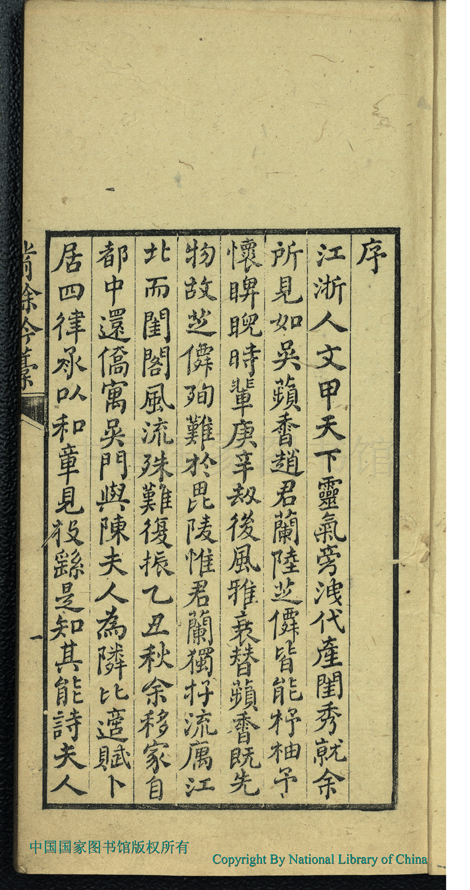 序
江浙人文甲天下靈氣旁洩代產閨秀就余
所見如吳蘋香趙君蘭陸芝僊皆能杼柚予
懷睥睨時輩庚辛劫後風雅衰替蘋香既先
物故芝僊殉難於毘陵惟君蘭獨抒流厲江
北而閨閣風流殊難復振乙丑秋余移家自
都中還僑寓吳門與陳夫人為隣比適賦卜
居四律承以和章見投繇是知其能詩夫人
餘吟藁
一
中国国家图书馆版权所有
Copyright By National Library of China